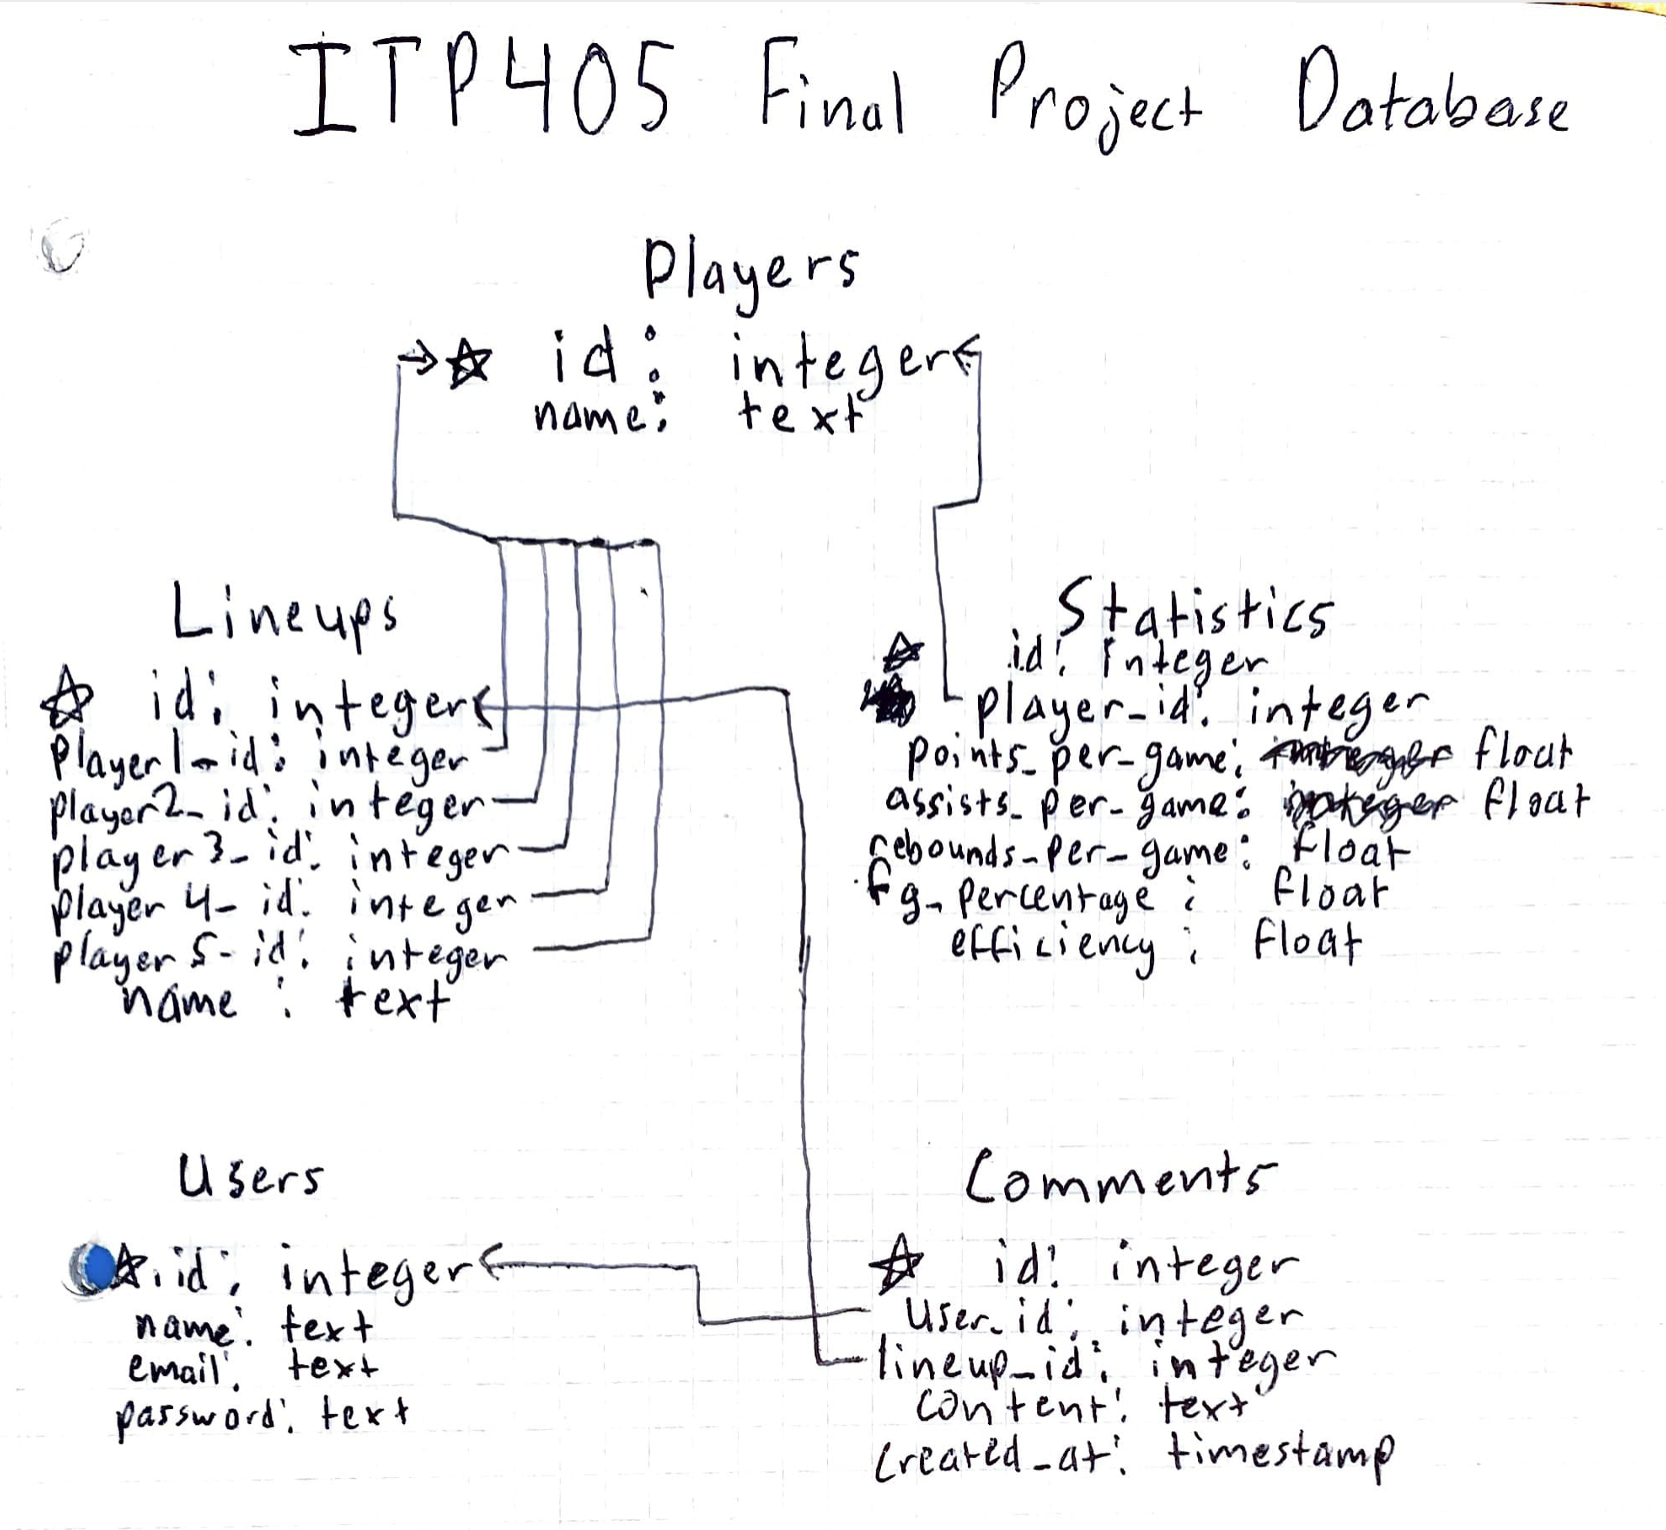 ITP405 Final Project Database
Players
id: integer
name: text
Lineups
id: integer
player1_id: integer
player2_id: integer
player3_id: integer
player4_id: integer
player5_id: integer
name: text
Statistics
id: integer
player_id: integer
points_per_game: float
assists_per_game: float
rebounds_per_game: float
fg_percentage: float
efficiency: float
Users
id: integer
name: text
email: text
password: text
Comments
id: integer
user_id: integer
lineup_id: integer
content: text
created_at: timestamp